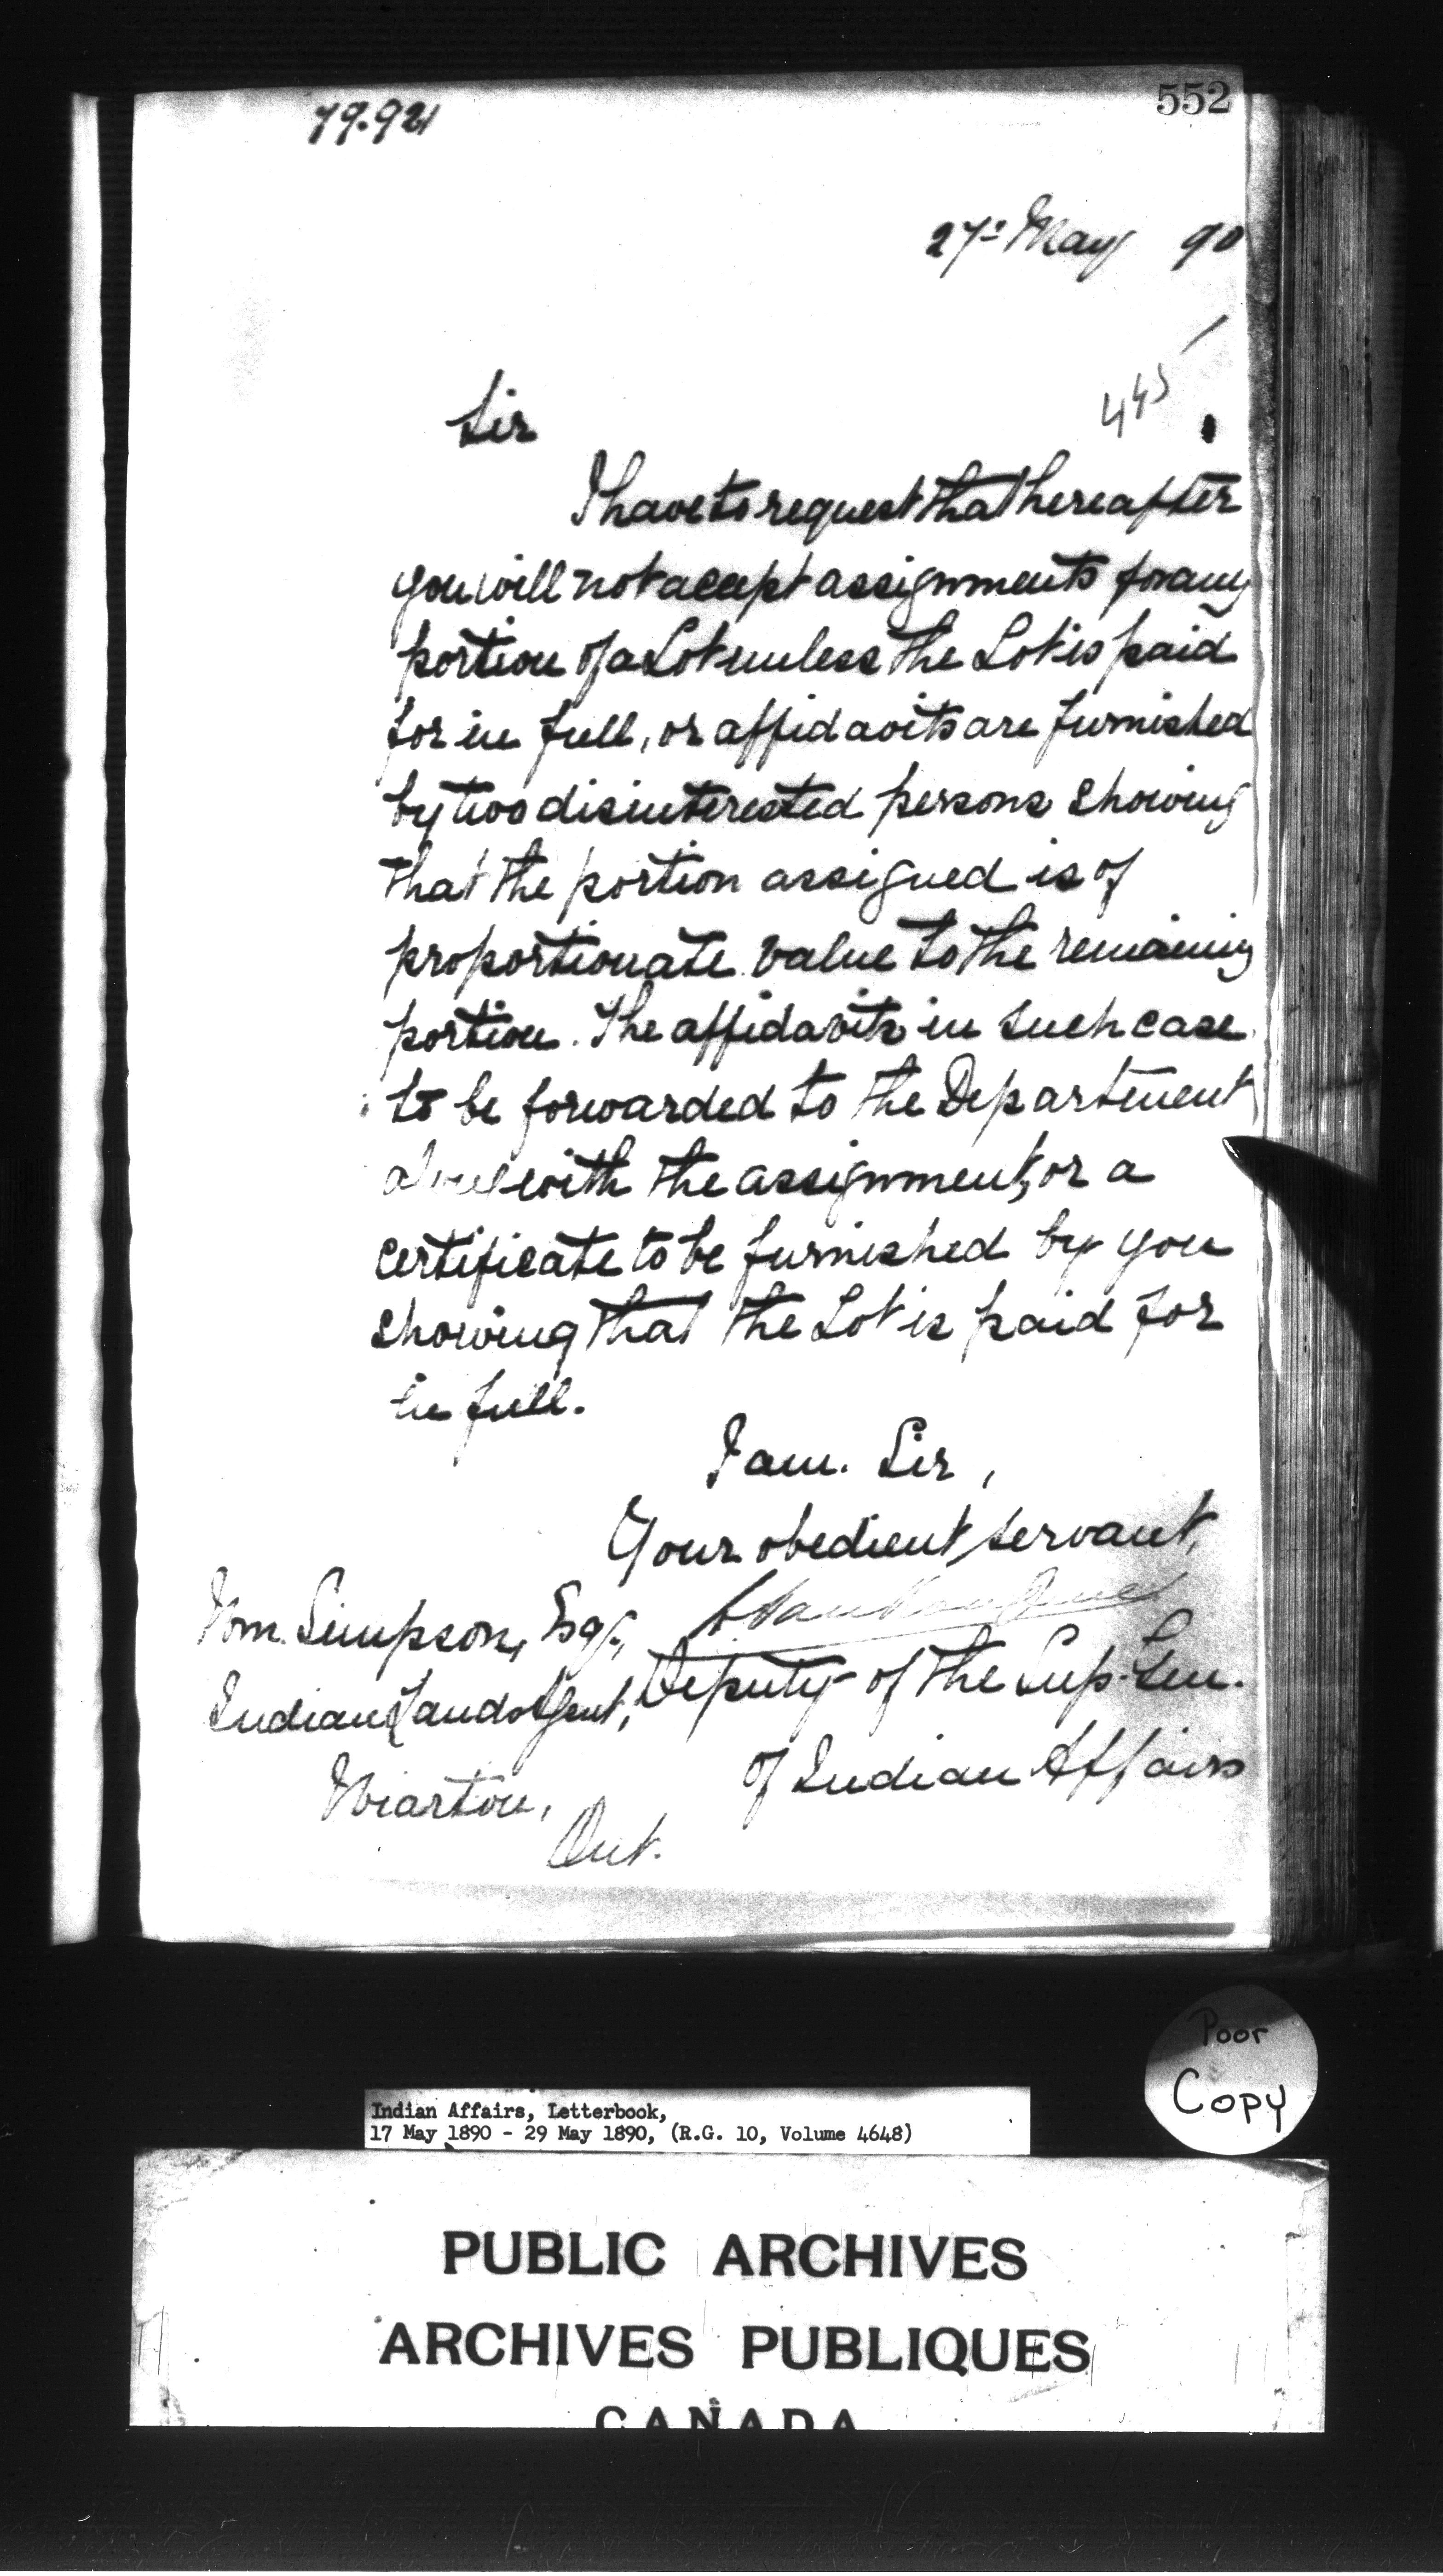 552
79.921
27th May 90
445
Sir
I have to request that hereafter
you will not accept assignments for any
portion of a Lot unless the Lot is paid
for in full, or affidavits are furnished
by two disinterested persons showing
that the portion assigned is of
proportionate value to the remaining
portion. The affidavits in such case
to be forwarded to the Department
along with the assignment, or a
certificate to be furnished by you
showing that the Lot is paid for
in full.
I am. Sir,
Your obedient servant,
L. Vankoughnet
Wm. Simpson, Esq.,
Deputy of the Sup. Gen.
Indian Lands Agent,
of Indian Affairs
Wiarton,
Ont.
Poor
Copy
Indian Affairs, Letterbook,
17 May 1890 - 29 May 1890, (R.G. 10, Volume 4648)
PUBLIC ARCHIVES
ARCHIVES PUBLIQUES
CANADA